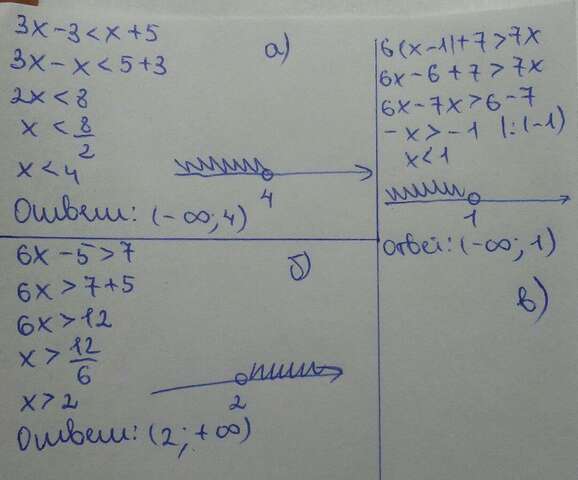 3x-3<x+5
а)
3x-x<5+3
2x<8
x<8/2
x<4
4
Ответ: (-∞; 4)
6x-5>7
б)
6x>7+5
6x>12
x>12/6
x>2
2
Ответ: (2; +∞)
6(x-1)+7>7x
6x-6+7>7x
6x-7x>6-7
-x>-1 |:(-1)
x<1
1
Ответ: (-∞; 1)
в)